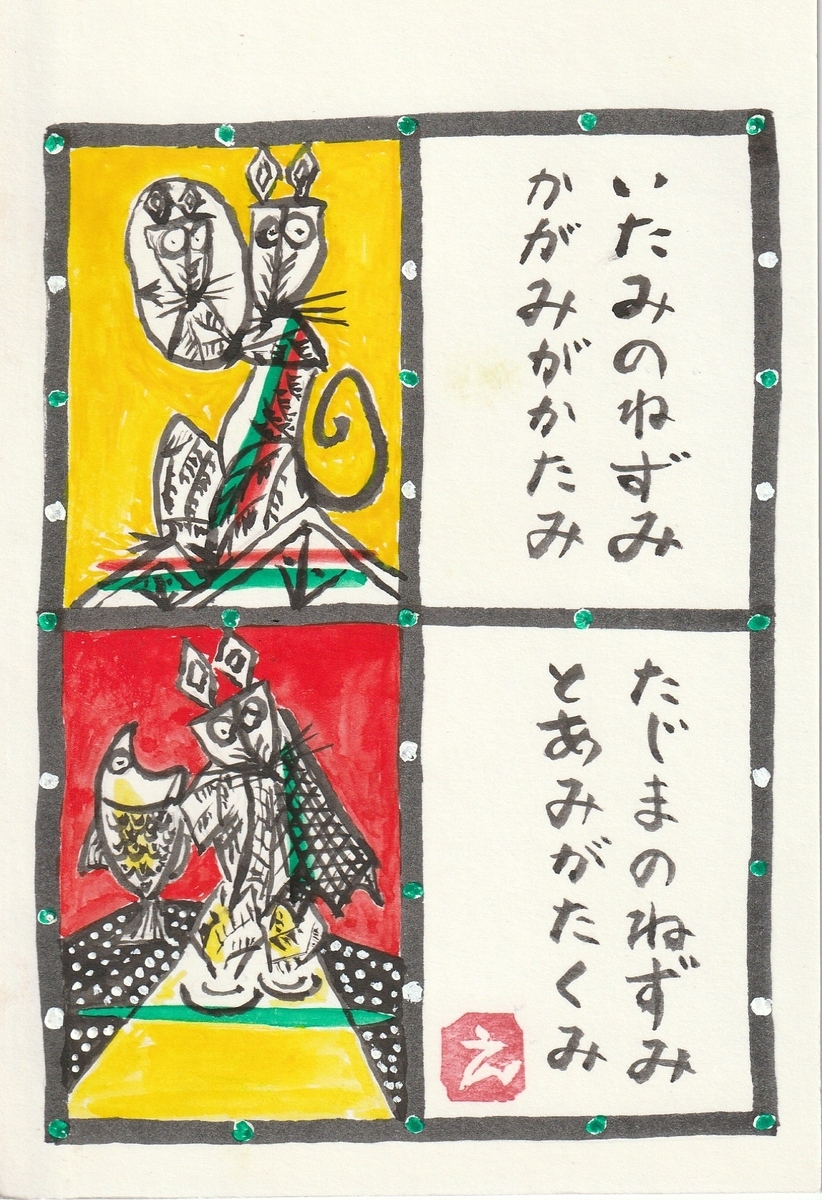 いたみのねずみ
かがみがかたみ
たじまのねずみ
とあみがたくみ
え